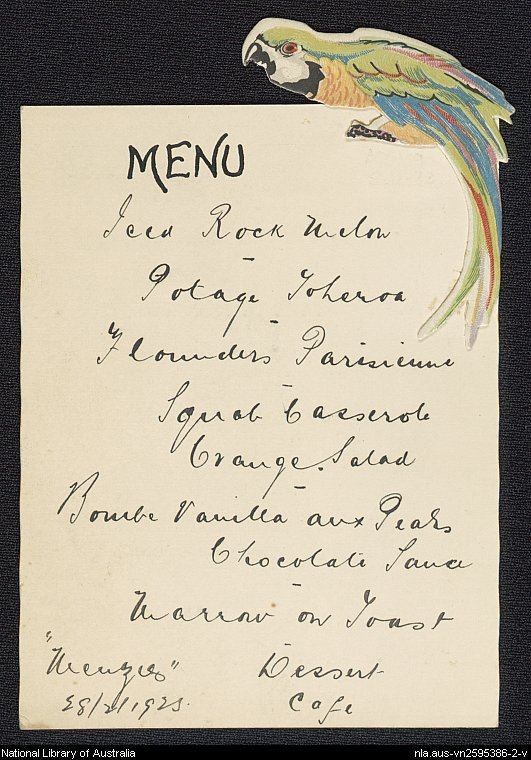 MENU
Iced Rock Melon
Potage Toheroa
Flounders Parisienne
Squab Casserole
Orange Salad
Bombe Vanilla aux Pears
Chocolate Sauce
Marrow on Toast
"Menzies" Dessert
28/2/1923. Cafe
National Library of Australia
nla.aus-vn2595386-2-v